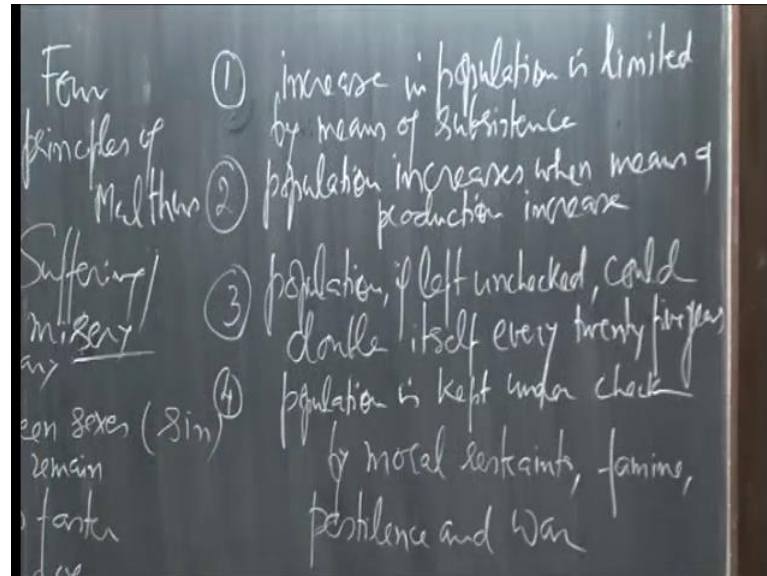 Four
principles of
Malthus
Suffering/
misery
een sexes (Sin)
remain
faster
① increase in population is limited
by means of subsistence
② population increases when means of
production increase
③ population, if left unchecked, could
double itself every twenty five years
④ population is kept under check
by moral restraints, famine,
pestilence and war